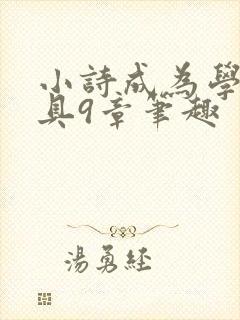 小詩成為學
具9章笔趣
湯勇經